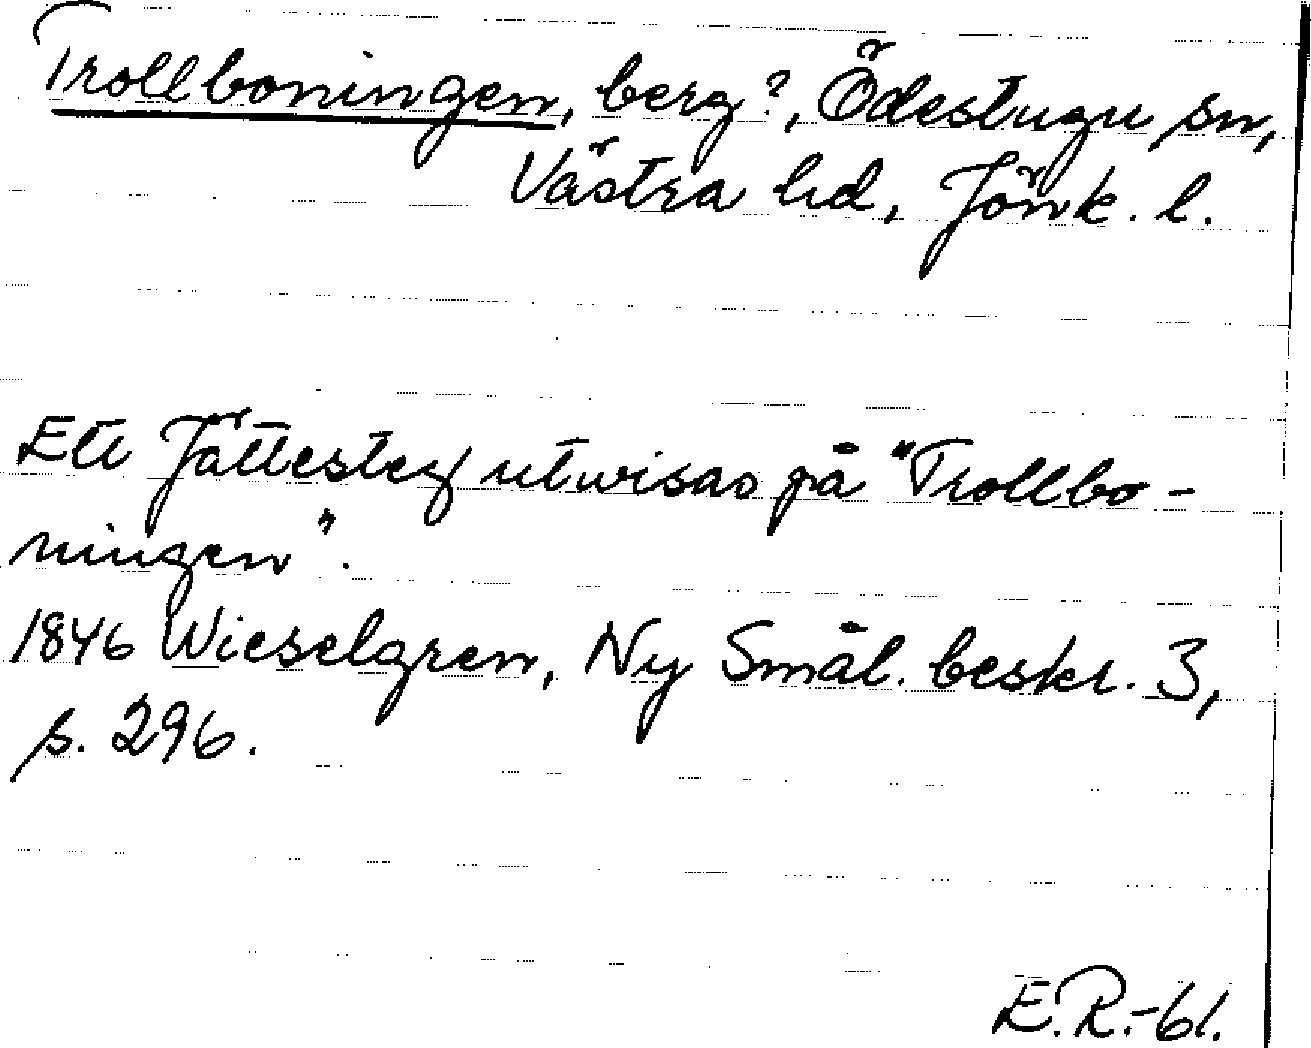 Trollboningen, berg?, Ödestugu sn,
Västra hd, Jönk. l.
Ett Jättesteg utwisas på "Trollbo-
ningen".
1846 Wieselgren, Ny Smål. beskr. 3,
s. 296.
E.R.-61.